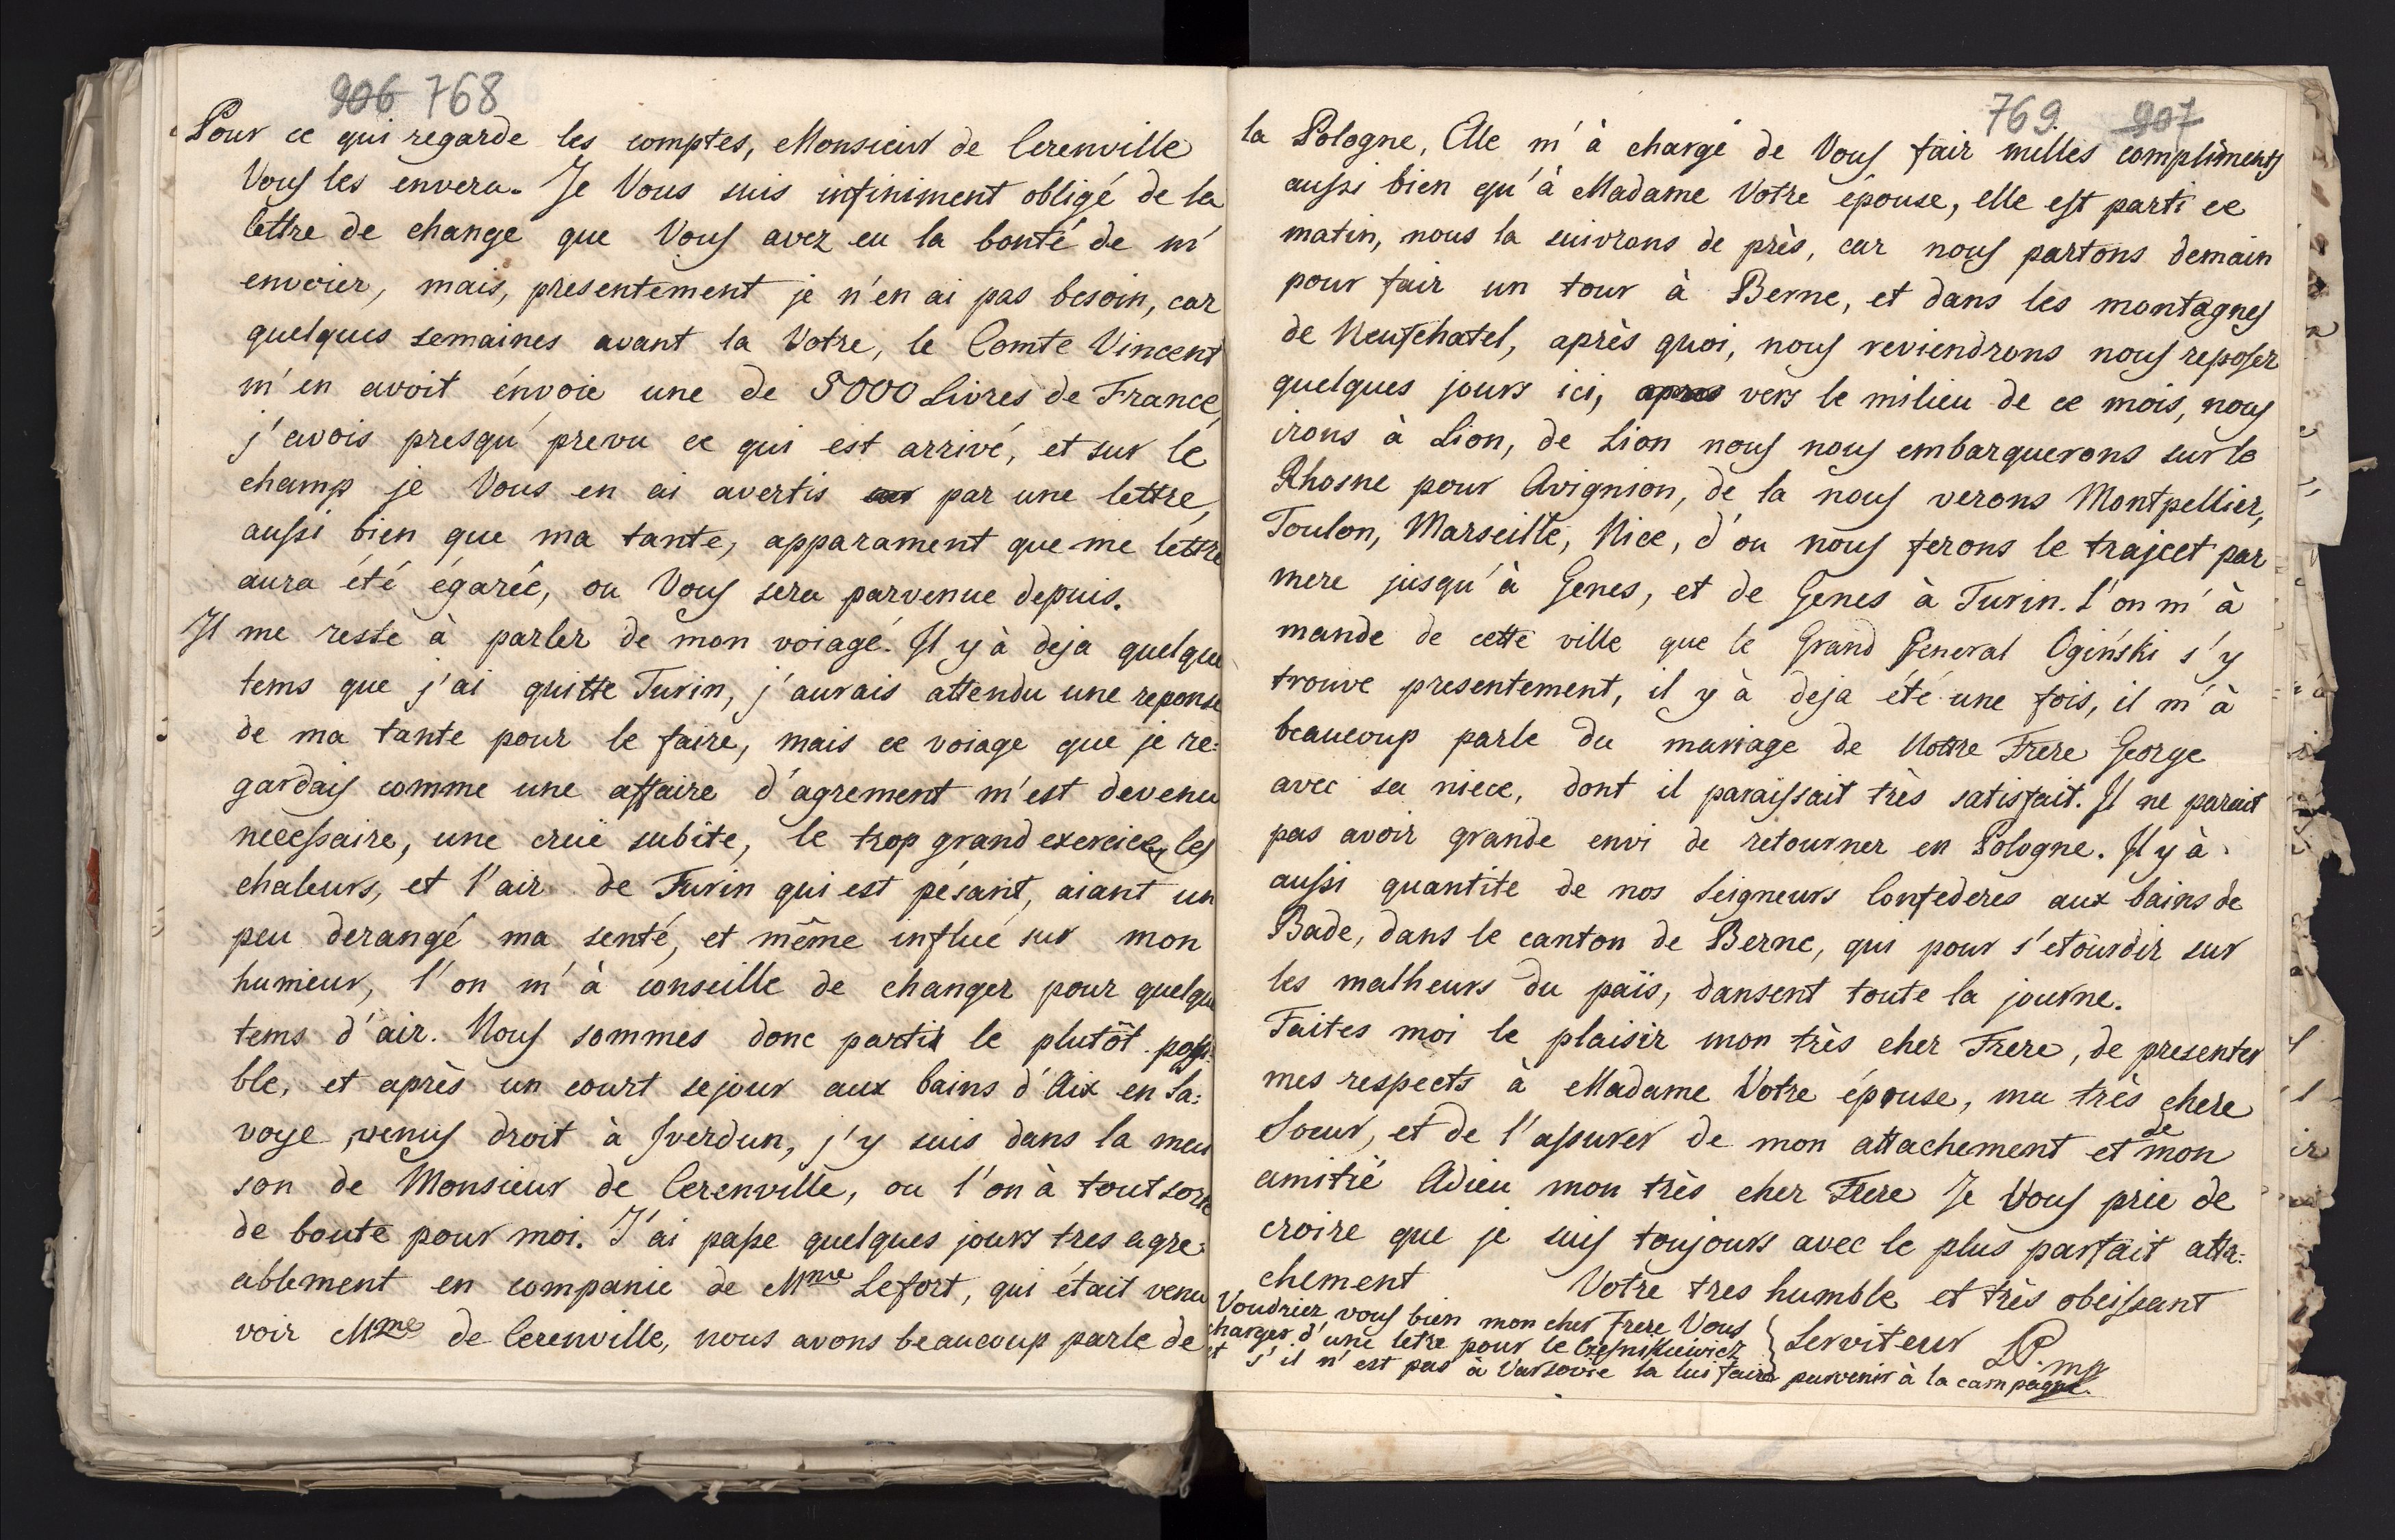 906 768
Pour ce qui regarde les comptes, Monsieur de Cerenville
Vous les envera. Je Vous suis infiniment obligé de la
lettre de change que Vous avez eu la bonté de m'
envoier, mais, presentement je n'en ai pas besoin, car
quelques semaines avant la Votre, le Comte Vincent
m'en avoit énvoie une de 5000 Livres de France,
j'avois presqu' prevu ce qui est arrivé, et sur le
champ je Vous en ai avertis par une lettre,
aussi bien que ma tante, apparament que me lettre
aura été égarée, ou Vous sera parvenue depuis.
Il me reste à parler de mon voiagé. Il y à deja quelque
tems que j'ai quitte Turin, j'aurais attendu une reponse
de ma tante pour le faire, mais ce voiage que je re=
gardais comme une affaire d'agrement m'est devenu
necessaire, une cruë subite, le trop grand exercice, les
chaleurs, et l'air de Turin qui est pésant, aiant un
peu derangé ma senté, et même influé sur mon
humeur, l'on m'à conseille de changer pour quelque
tems d'air. Nous sommes donc partis le plutôt possi=
ble, et après un court sejour aux bains d'Aix en Sa=
voye, venus droit à Iverdun, j'y suis dans la mai
son de Monsieur de Cerenville, ou l'on à tout sorte
de bonte pour moi. J'ai passe quelques jours tres agre=
ablement en companie de Mme Lefort, qui était venu
voir Mme de Cerenville, nous avons beaucoup parle de
769. 907
la Pologne, Elle m'à chargé de Vous fair milles compliments
aussi bien qu'à Madame Votre épouse, elle est parti ce
matin, nous la suivrons de près, car nous partons demain
pour fair un tour à Berne, et dans les montagnes
de Neufchatel, après quoi, nous reviendrons nous reposer
quelques jours ici, apres vers le milieu de ce mois, nous
irons à Lion, de Lion nous nous embarquerons sur le
Rhosne pour Avignion, de la nous verons Montpellier,
Toulon, Marseille, Nice, d'ou nous ferons le trajeet par
mere jusqu'à Genes, et de Genes à Turin. L'on m'à
mande de cette ville que le Grand General Ogiński s'y
trouve presentement, il y à deja été une fois, il m'à
beaucoup parle du mariage de Notre Frere George
avec sa niece, dont il paraissait très satisfait. Il ne parait
pas avoir grande envi de retourner en Pologne. Il y à
aussi quantite de nos Seigneurs Confederes aux bains de
Bade, dans le canton de Berne, qui pour s'etourdir sur
les malheurs du païs, dansent toute la journe.
Faites moi le plaisir mon très cher Frere, de presenter
mes respects à Madame Votre épouse, ma très chere
Soeur, et de l'assurer de mon attachement et de mon
amitié Adieu mon très cher Frere Je Vous prie de
croire que je suis toujours avec le plus parfait atta=
chement Votre tres humble et très obeissant
Serviteur
Voudriez vous bien mon cher Frere Vous
charger d'une letre pour le Czesnikiewicz
et s'il n'est pas à Varsovie la lui faire parvenir à la campagne.